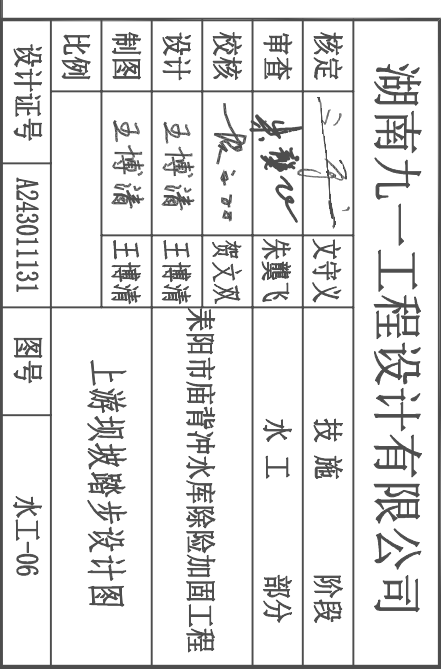 湖南九一工程设计有限公司
核定 文守义 技施 阶段
审查 朱龚飞 水工 部分
校核 贺文双 耒阳市庙背冲水库除险加固工程
设计 王博清 王博清
制图 王博清 王博清 上游坝坡踏步设计图
比例
设计证号 A243011131 图号 水工-06